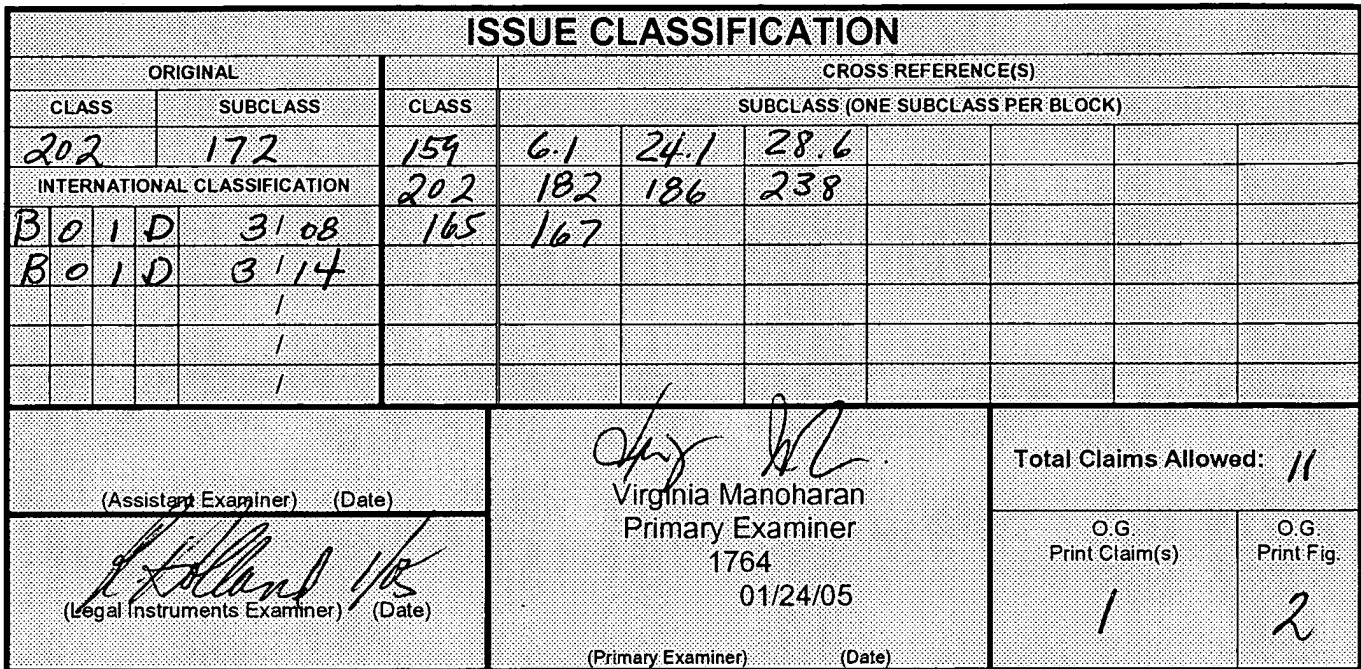 ISSUE CLASSIFICATION
ORIGINAL CROSS REFERENCE(S)
CLASS SUBCLASS CLASS SUBCLASS (ONE SUBCLASS PER BLOCK)
202 172 159 6.1 24.1 28.6
INTERNATIONAL CLASSIFICATION 202 182 186 238
B 0 1 D 3/08 165 167
B 0 1 D 3/14
/
/
/
(Assistant Examiner) (Date)
Holland 1/05
(Legal Instruments Examiner) (Date)
Virginia Manoharan
Primary Examiner
1764
01/24/05
(Primary Examiner) (Date)
Total Claims Allowed: 11
O.G. Print Claim(s)
1
O.G. Print Fig.
2